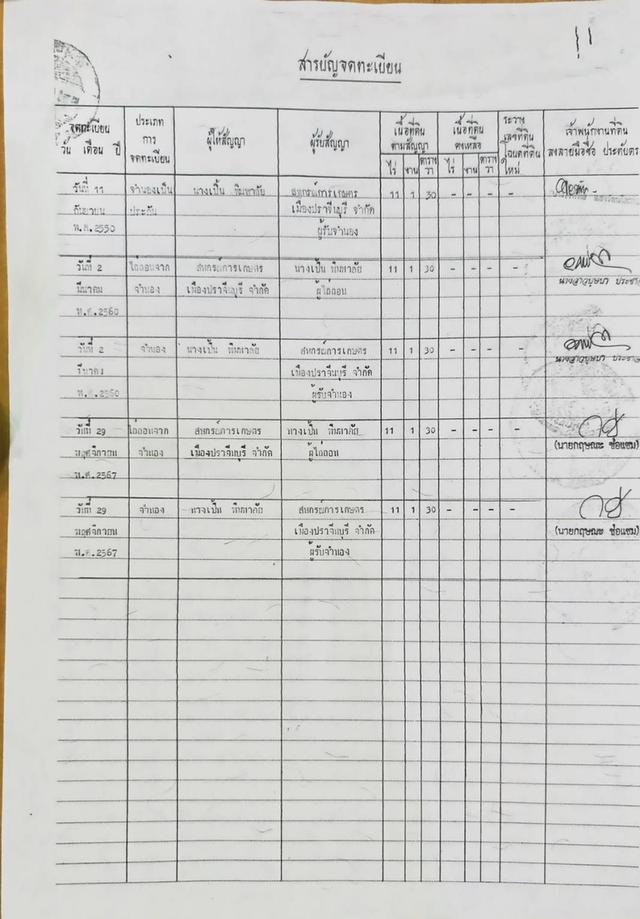 สารบัญจดทะเบียน
จดทะเบียน วัน เดือน ปี
ประเภท การ จดทะเบียน
ผู้ให้สัญญา
ผู้รับสัญญา
เนื้อที่ดิน ตามสัญญา
ไร่ งาน ตารางวา
เนื้อที่ดิน คงเหลือ
ไร่ งาน ตารางวา
ระวาง เลขที่ดิน โฉนดที่ดิน ใหม่
เจ้าพนักงานที่ดิน
ลงลายมือชื่อ ประทับตรา
วันที่ 11 จำนองเป็น สหกรณ์การเกษตร 11 1 30 - - - -
กันยายน ประกัน เมืองปราจีนบุรี จำกัด
พ.ศ.2550 ผู้รับจำนอง
วันที่ 2 ไถ่ถอนจาก สหกรณ์การเกษตร นางเป็น 11 1 30 - - - -
มีนาคม จำนอง เมืองปราจีนบุรี จำกัด ผู้ไถ่ถอน
นางสาวบุษบา ประชา
พ.ศ.2560
วันที่ 2 จำนอง นางเป็น สหกรณ์การเกษตร 11 1 30 - - - -
มีนาคม เมืองปราจีนบุรี จำกัด
นางสาวบุษบา ประชา
พ.ศ.2560 ผู้รับจำนอง
วันที่ 29 ไถ่ถอนจาก สหกรณ์การเกษตร นางเป็น 11 1 30 - - - -
พฤศจิกายน จำนอง เมืองปราจีนบุรี จำกัด ผู้ไถ่ถอน
(นายกฤษณะ ช่อแซม)
พ.ศ.2567
วันที่ 29 จำนอง นางเป็น สหกรณ์การเกษตร 11 1 30 - - - -
พฤศจิกายน เมืองปราจีนบุรี จำกัด
(นายกฤษณะ ช่อแซม)
พ.ศ.2567 ผู้รับจำนอง